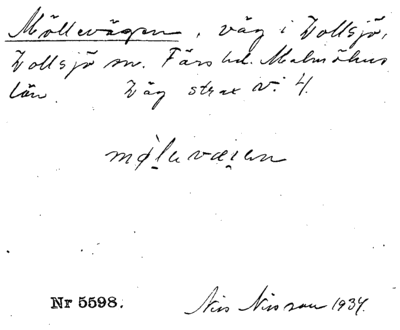 Möllevägen, väg i Lollsjö,
Lollsjö sn. Färs hd. Malmöhus
län. Låg strax V. 4.
mø̜levæ̜ien
Nr 5598.
Nils Nilsson 1934.